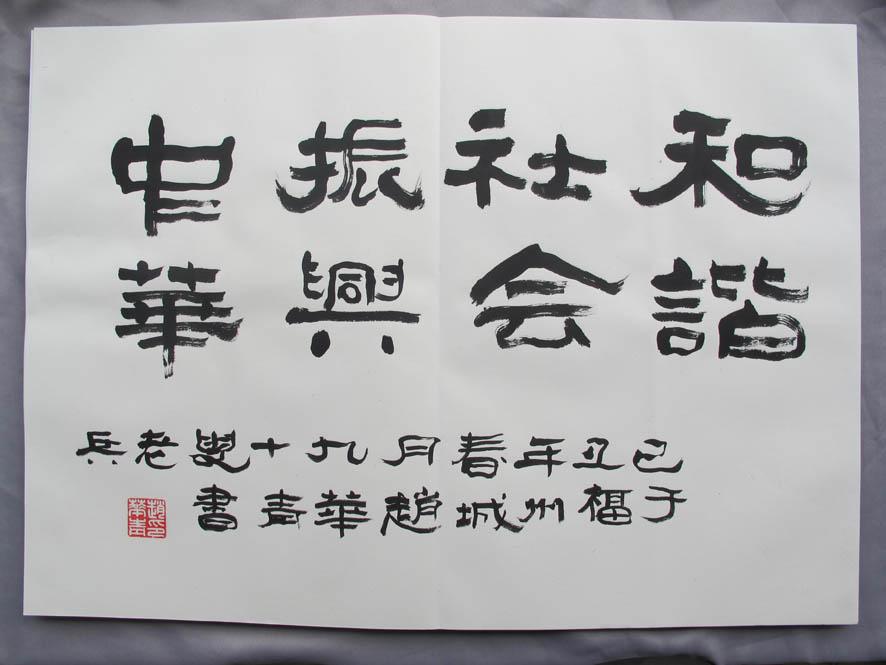 和諧
社会
振興
中華
己丑年春月九十叟老兵
于福州城趙華青書